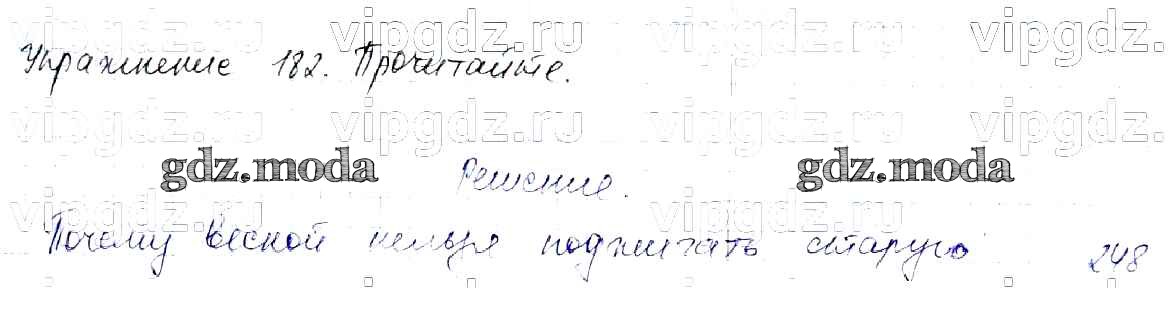 vipgdz.ru vipgdz.ru vipgdz.ru vipgdz.ru
Упражнение 182. Прочитайте.
vipgdz.ru vipgdz.ru vipgdz.ru vipgdz.ru
gdz.moda Решение. gdz.moda
vipgdz.ru vipgdz.ru vipgdz.ru vipgdz.ru
Почему весной нельзя поджигать старую 248